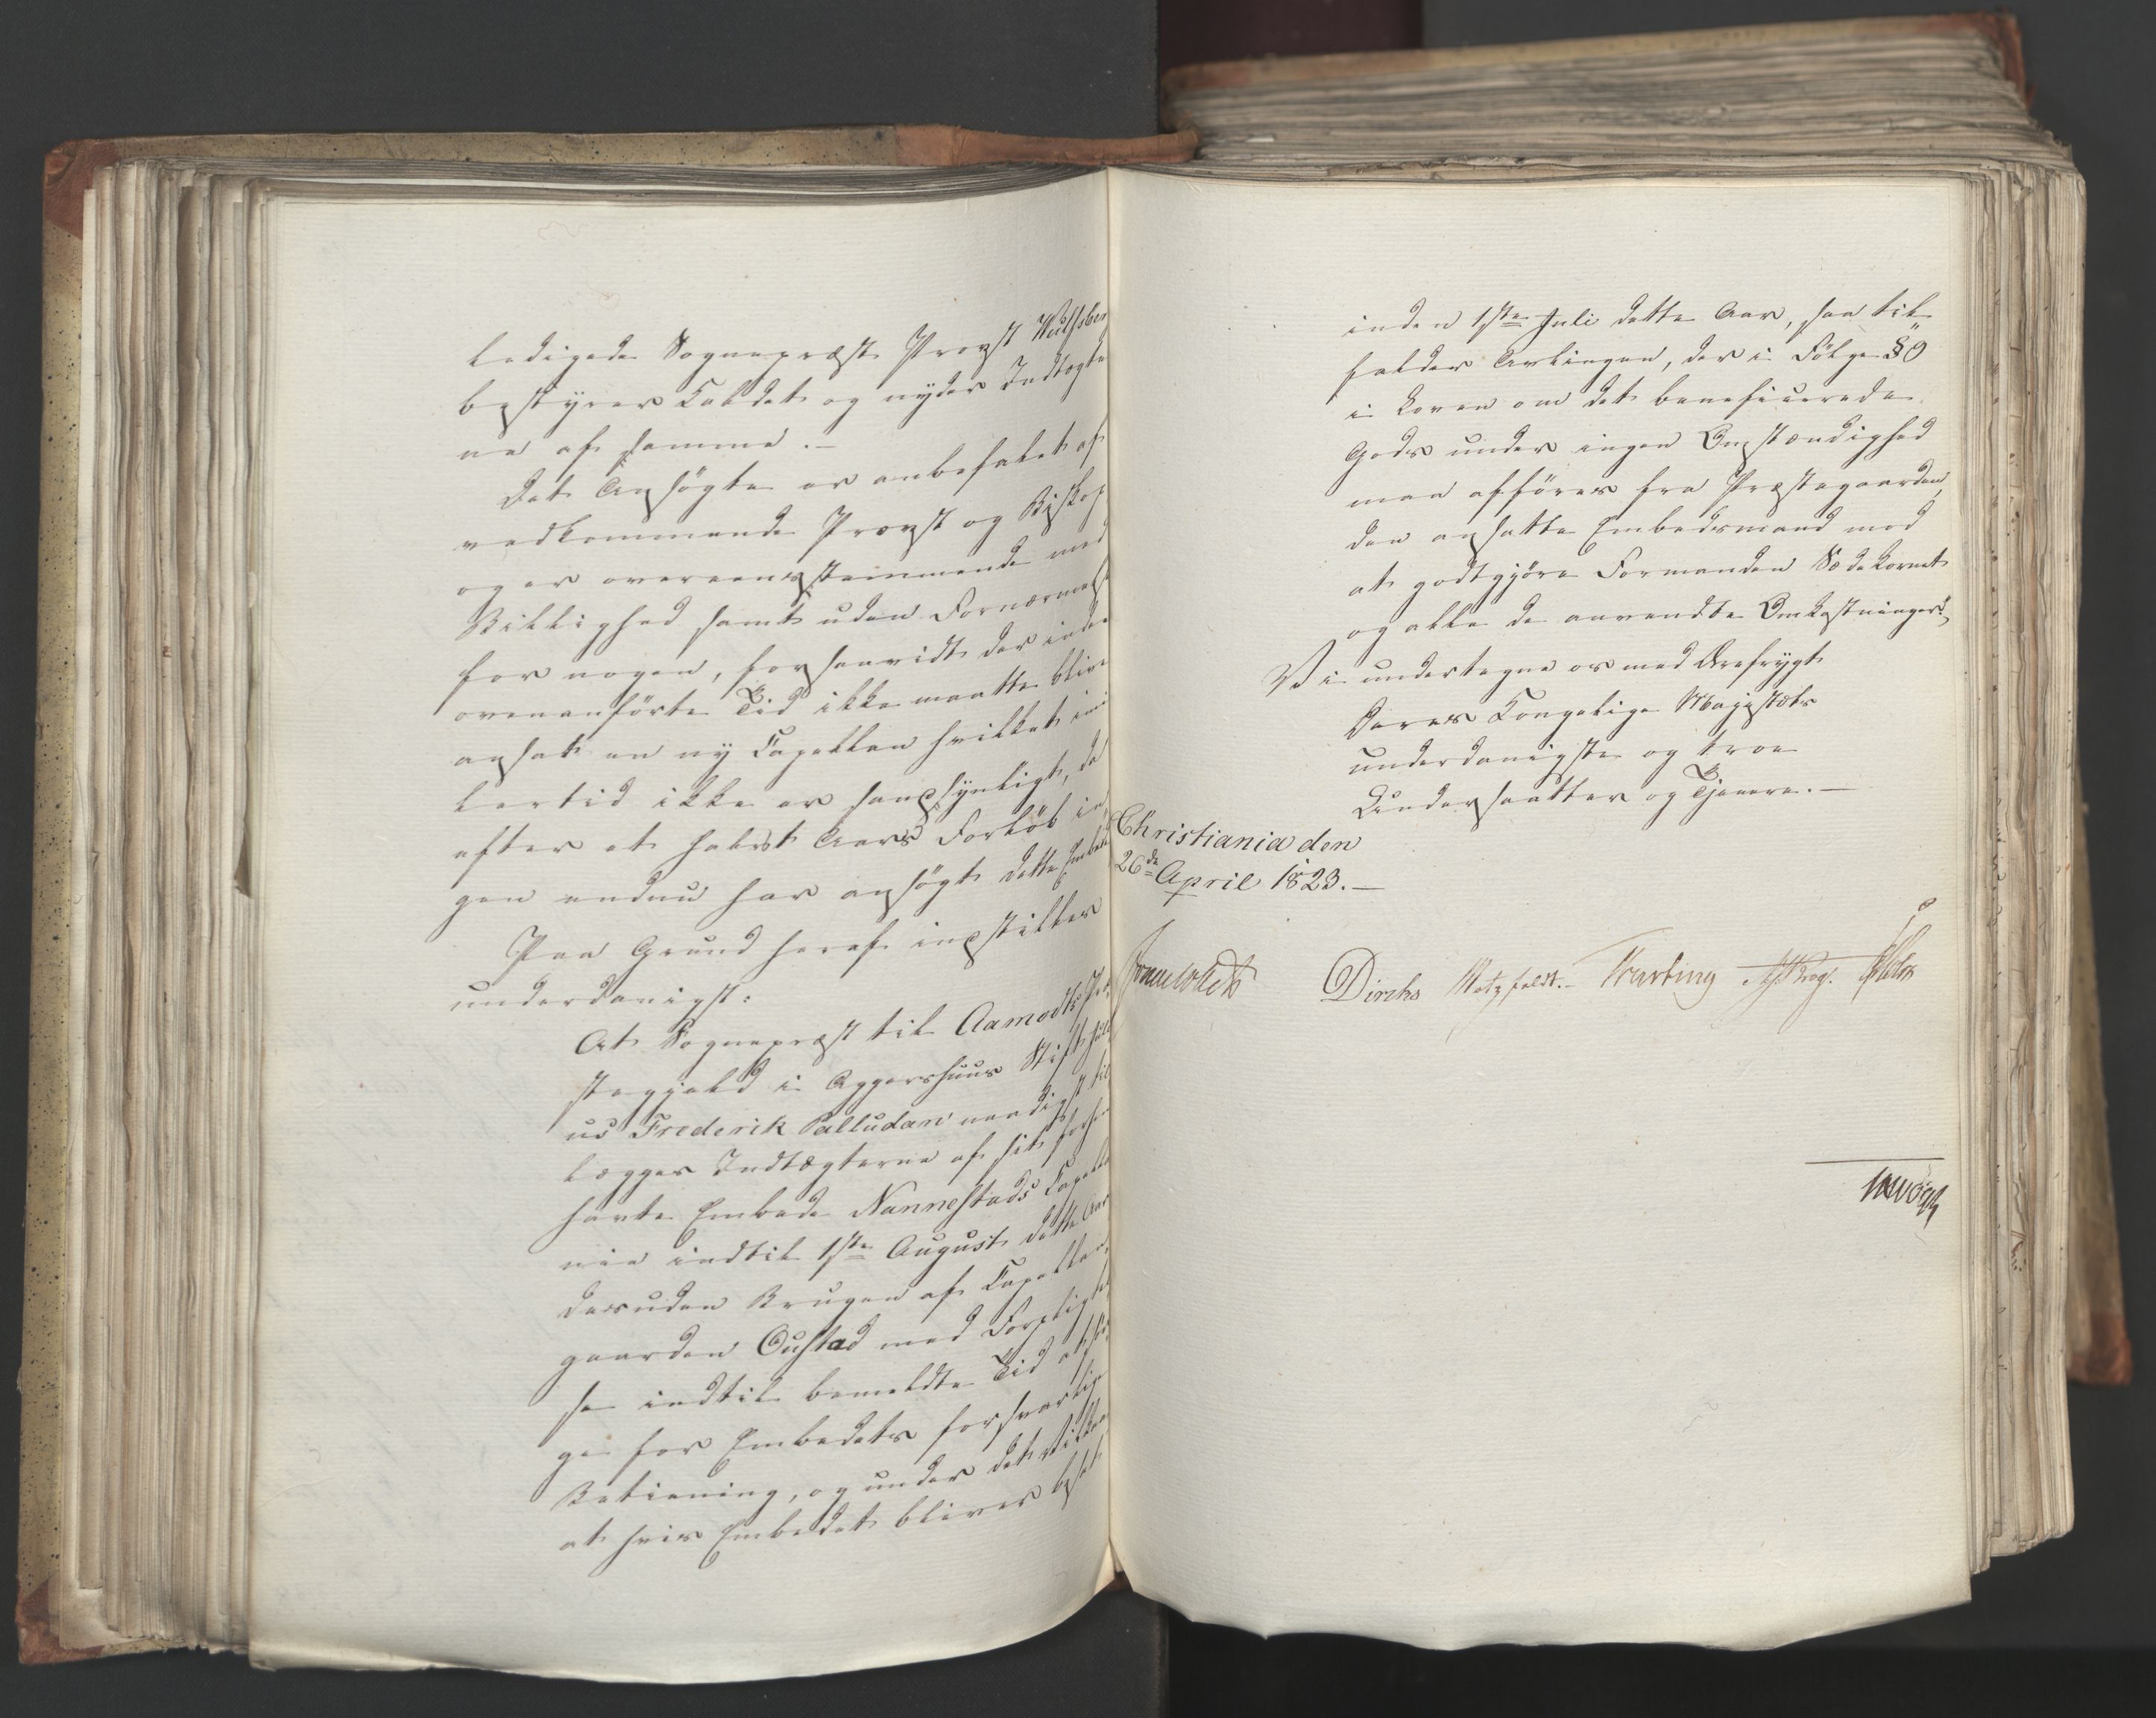 ledigede Sognepræst Provst Wulfsber
bestyrer Kaldet og nyder Indtægte
ne af samme.-
Det Ansøgte er anbefalet af
vedkommende Provst og Biskop
og er overeensstemmende med
Billighed samt uden Fornærmelse
for nogen, forsaavidt der inden
ovenanførte Tid ikke maatte blive
ansat en ny Capellan hvilket imi
lertid ikke er sandsynligt, da
efter et halvt Aars Forløb in
gen endnu har ansøgt dette Embede
Paa Grund heraf indstilles
underdanigst:
At Sognepræst til Aamodts Præ
stegjeld i Aggershuus Stift Juli
us Frederik Palludan naadigst til
lægges Indtægterne af sit forhen
havte Embede Nannestads Capella
nie indtil 1ste August dette Aar
desuden Brugen af Capellan
gaarden Oustad med Forpligtel
se indtil bemeldte Tid at sør
ge for Embedets forsvarlige
Betjening, og under det Vilkaar
at hvis Embedet bliver besat
inden 1ste Juli dette Aar, saa til
falder Avlingen, der i Følge § 9
i Loven om det beneficerede
Gods under ingen Omstændighed
maa afføres fra Præstegaarden,
den ansatte Embedsmand mod
at godtgjøre Formanden Sædekornet
og alle de anvendte Omkostninger",
Vi undertegne os med Ærefrygt
Deres Kongelige Majestæts
underdanigste og troe
Undersaatter og Tjenere.-
Christiania den
26de April 1823.-
Diriks Motzfeldt.- Krog.